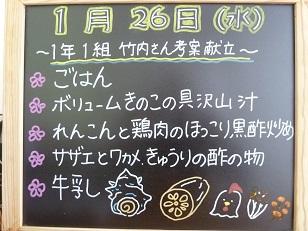 1月26日(水)
～1年1組 竹内さん考案献立～
ごはん
ボリュームきのこの具沢山汁
れんこんと鶏肉のほっこり黒酢炒め
サザエとワカメ、きゅうりの酢の物
牛乳